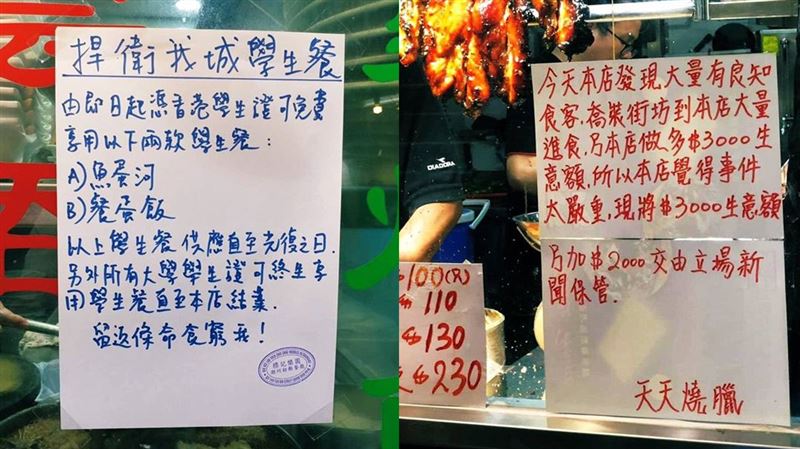 捍衛我城學生餐
由即日起憑香港學生證可免費
享用以下兩款學生餐：
A)魚蛋河
B)餐蛋飯
以上學生餐供應直至光復之日.
另外所有大學學生證可終生享
用學生餐直至本店結業.
留返條命食窮我！
今天本店發現大量有良知
食客,喬裝街坊到本店大量
進食,乃本店做多$3000生
意額,所以本店覺得事件
太嚴重,現將$3000生意額
乃加$2000交由立場新
聞保管.
天天燒臘
DIADORA
100(只)
110
130
230